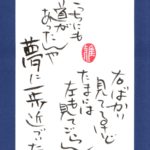 右ばかり
見てるけど
たまには
左も見てごらん
こっちにも
道が
あったんや
夢に一歩近づいた